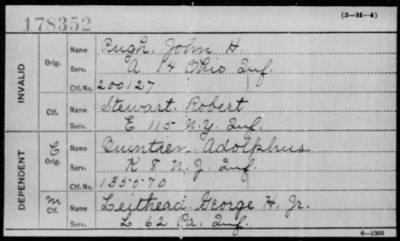 178352
(3-31-4)
INVALID
Orig.
Name Pugh, John H.
Serv. A 14 Ohio Inf.
Ctf. No. 200127
Ctf.
Name Stewart, Robert
Serv. E 115 N.Y. Inf.
DEPENDENT
Orig.
Name Adolphus
Serv. K 8 N.J. Inf.
Ctf. No. 135570
M
Ctf.
Name Leithead, George H. Jr.
Serv. L 62 Pa. Inf.